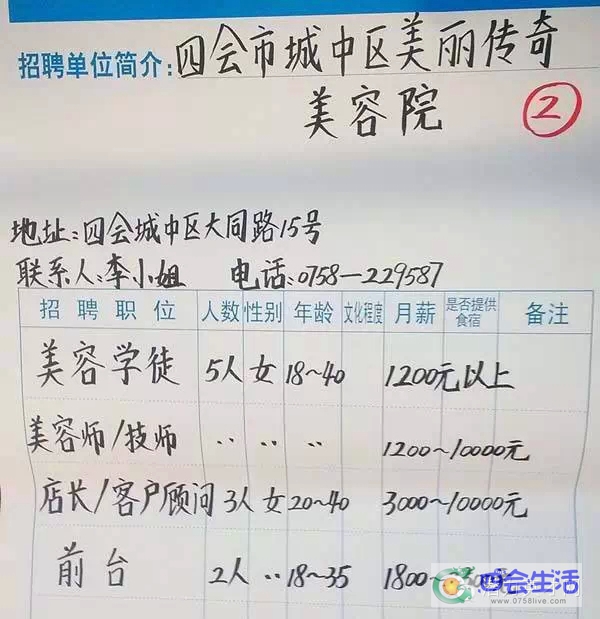 招聘单位简介:四会市城中区美丽传奇
美容院 ②
地址:四会城中区大同路15号
联系人:李小姐 电话:0758-229587
招聘职位 人数 性别 年龄 文化程度 月薪 是否提供食宿 备注
美容学徒 5人 女 18~40 1200元以上
美容师/技师 〃 〃 〃 1200~10000元
店长/客户顾问 3人 女 20~40 3000~10000元
前台 2人 〃 18~35 1800~
四会生活
www.0758live.com